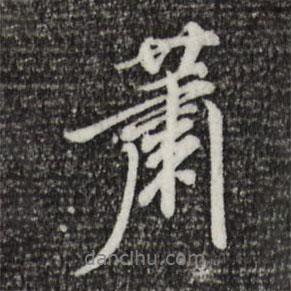 蕭
dancihu.com